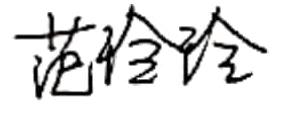 范玲玲